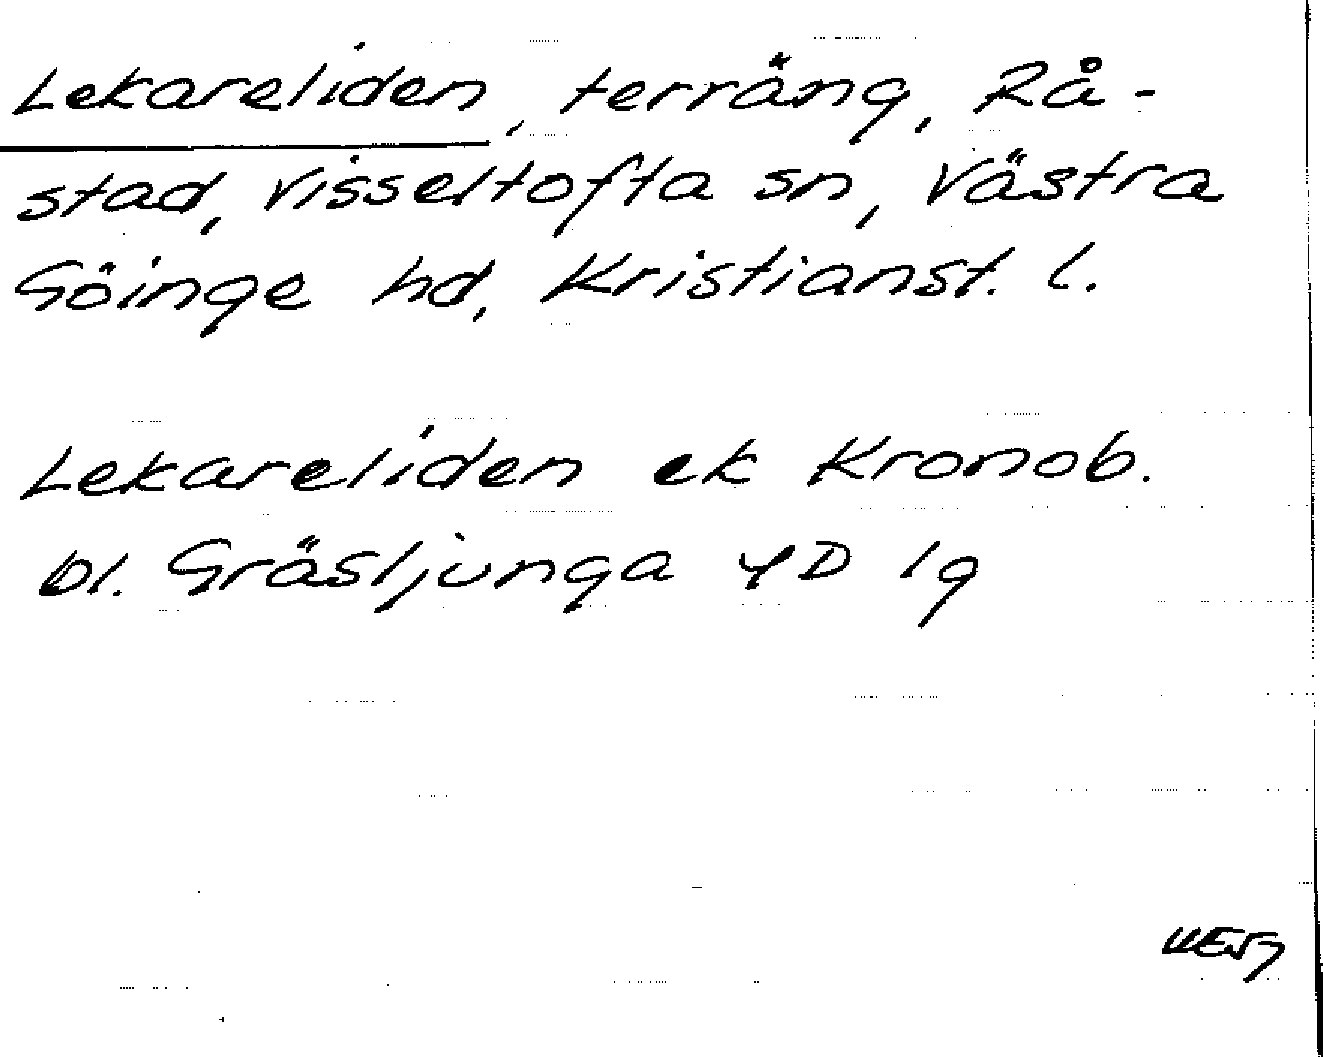 Lekareliden, terräng, Rå-
stad, Visseltofta sn, Västra
Göinge hd, Kristianst. l.
Lekareliden ek Kronob.
bl. Gräsljunga 4D 1g